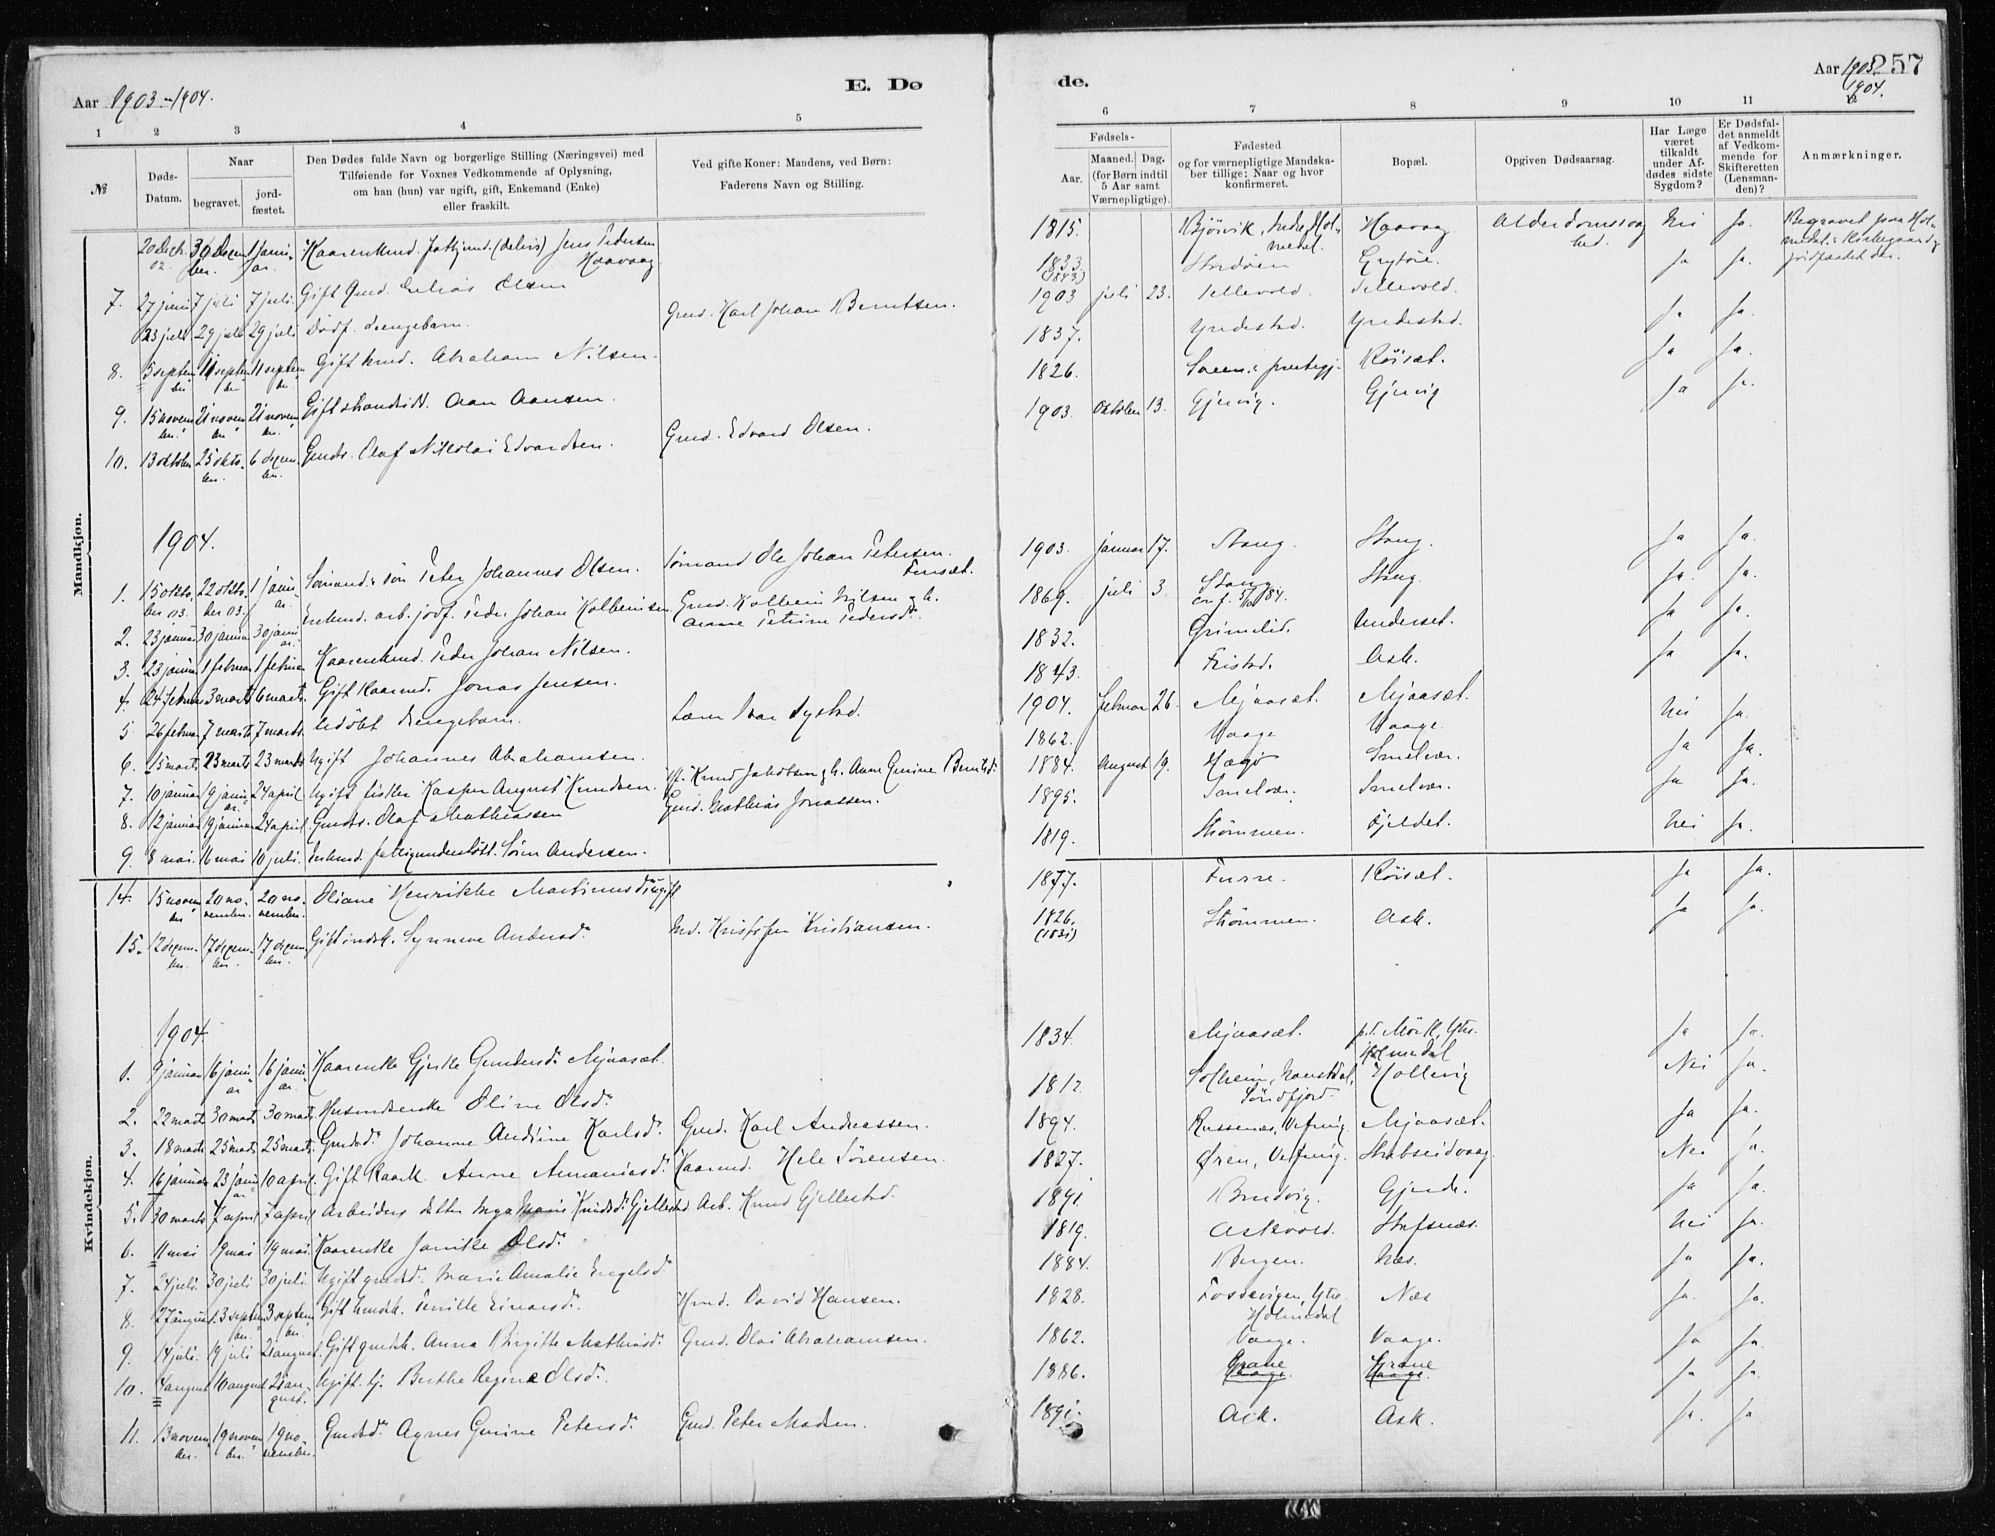 Aar 1903-1904.
E. Dø
de.
Aar 1903-1904.
257
1 2 3 4 5
6 7 8 9 10 11 12
№
Døds-Datum.
Naar
begravet.
jordfæstet.
Den Dødes fulde Navn og borgerlige Stilling (Næringsvei) med
Tilføiende for Voxnes Vedkommende af Oplysning,
om han (hun) var ugift, gift, Enkemand (Enke)
eller fraskilt.
Ved gifte Koner: Mandens, ved Børn:
Faderens Navn og Stilling.
Fødsels-
Aar.
Maaned. Dag.
(for Børn indtil
5 Aar samt
Værnepligtige).
Fødested
og for værnepligtige Mandska-
ber tillige: Naar og hvor
konfirmeret.
Bopæl.
Opgiven Dødsaarsag.
Har Læge
været
tilkaldt
under Af-
dødes sidste
Sygdom?
Er Dødsfal-
det anmeldt
af Vedkom-
mende for
Skifteretten
(Lensman-
den)?
Anmærkninger.
Mandkjøn.
Jens Pedersen Haavaag 1815. Haavaag Alderdomssvaghed. Nei Ja.
7. 27 juni 7 juli 7 juli. Gift Gmd. Elias Olsen 1833 (1843) Grytøie. Ja Ja.
23 juli 29 juli 29 juli Dødf. drengebarn. Gmd. Karl Johan Berntsen. 1903 juli 23. Tellevold. Tellevold.
8. 5 septem ber 11 septem ber 11 septem ber Gift hmd. Abraham Nilsen. 1837. Yndestad. Yndestad. Ja Ja.
9. 15 novem ber 21 novem ber 21 novem ber Gift strandsidd. Aan Aansen. 1826. Røisæt. Ja Ja.
10. 13 oktober 25 okto ber. 6 dezem ber. Gmds. Olaf Nikolai Edvardsen. Gmd. Edvard Olsen. 1903. Oktober 13. Gjervig. Gjervig Ja Ja.
1904.
1. 15 okto ber 03. 22 okto ber 03. 1 janu ar. Sømands søn Peter Johannes Olsen. Sømand Ole Johan Petersen. Fursæt. 1903. januar 17. Stang. Stang. Ja Ja.
2. 23 januar 30 januar 30 janu ar. Enkmd. arb. Peder Johan Kolbeinsen Gmd. Kolbein Nilsen og h. Anne Petrine Pedersdr. 1869. juli 3. Stang. conf. 5/10 84. Stang. Ja. Ja.
3. 23 januar 1 februar 1 februar Kaarenkmd. Peder Johan Nilsen. 1832. Grimelid. Underset. Ja Ja.
4. 24 februar 3 marts 6 marts. Gift kaarmd. Jonas Jensen. 1843. Fristad. Ask. Ja Ja.
5 26 februar 7 marts 7 marts. Udøbt drengebarn. Lærer Ivar Nystad. 1904. februar 26. Mjaasæt. Mjaasæt. Nei Ja.
6. 15 marts 23 marts 23 marts Ugift Johannes Abrahamsen. 1862. Vaage Vaage. Ja Ja.
7. 10 januar 19 janu ar. 24 april Ugift fisker Kasper August Knudsen. Knud Jakobsen og h. Anne Gurine Berntsdr. 1884. August 19. Smelvær. Ja Ja.
8. 12 januar 19 januar 24 april. Gmds. Olaf Mathiassen Gmd. Mathias Jonassen. 1895. Smelvær. Smelvær.
9. 8 mai. 16 mai 10 juli. Enkmd. fattigunderstøtt. Søren Andersen. 1819. Strømmen. Fjeldet. Nei Ja.
Kvindekjøn.
14. 15 novem ber 20 november. 20 november. Oliane Henrikke Martinusdr. ugift 1877. Furre. Røisæt. Ja Ja.
15. 12 dezem ber. 17 dezem ber. 17 dezem ber. Gift indsk. Synneve Andersdr. Ind. Kristofer Kristiansen. 1826. (1831) Strømmen. Ask. Ja Ja.
1904
1. 9 januar 16 janu ar 16 janu ar. Kaarenke Gjerke Gundersdr. Mjaasæt. 1834. Mjaasæt. p.t. Mörk, Ytre Holmedal Ja Ja.
2. 22 marts 30 marts 30 marts. Husmdsenke Oline Olsdr. 1812 Solheim, Søndfjord. Hollevig Nei Ja.
3. 18 marts 25 marts 25 marts. Gmdsdr. Johanne Andrine Karlsdr. Gmd. Karl Andreassen. 1894. Russenæs, Vefring. Mjaasæt. Ja Ja.
4. 16 januar 23 janu ar 10 april. Gift kaark. Anne Ananiasdr. Kaarmd. Hele Sørensen. 1827. Øren, Vefring. Stubseidvaag. Nei Ja.
5. 30 marts 7 april 7 april Arbeiders datter Inga Marie Knudsdr. Gjellestad Arb. Knud Gjellestad. 1891 Bredvig. Gjerde. Ja Ja.
6. 11 mai 19 mai 19 mai. Kaarenke Janikke Olsdr. 1819. Askvold. Stafsnæs. Nei Ja.
7. 24 juli. 30 juli 30 juli. Ugift gmdsdr. Marie Amalie Engelsdr. 1884. Bergen. Næs. Ja Ja.
8. 27 august. 3 septem ber. 3 septem ber. Gift hmdsk. Pernille Einarsdr. Hmd. David Hansen. 1828. Fossevigen, Ytre Holmedal Næs Ja. Ja.
9. 14 juli. 19 juli 21 august. Gift gmdsk. Anna Birgitte Mathiasdr. Gmd. Olai Abrahamsen. 1862. Vaage. Vaage. Ja Ja.
10. 4 august 10 august 21 august. Ugift tj. Berthe Regine Olsdr. 1886. Grane Vaage. Grane Vaage. Ja Ja.
11. 13 novem ber. 19 novem ber. 19 november. Gmdsdr. Agnes Gurine Petersdr. Gmd. Peter Madsen. 1891. Ask. Ask. Ja. Ja